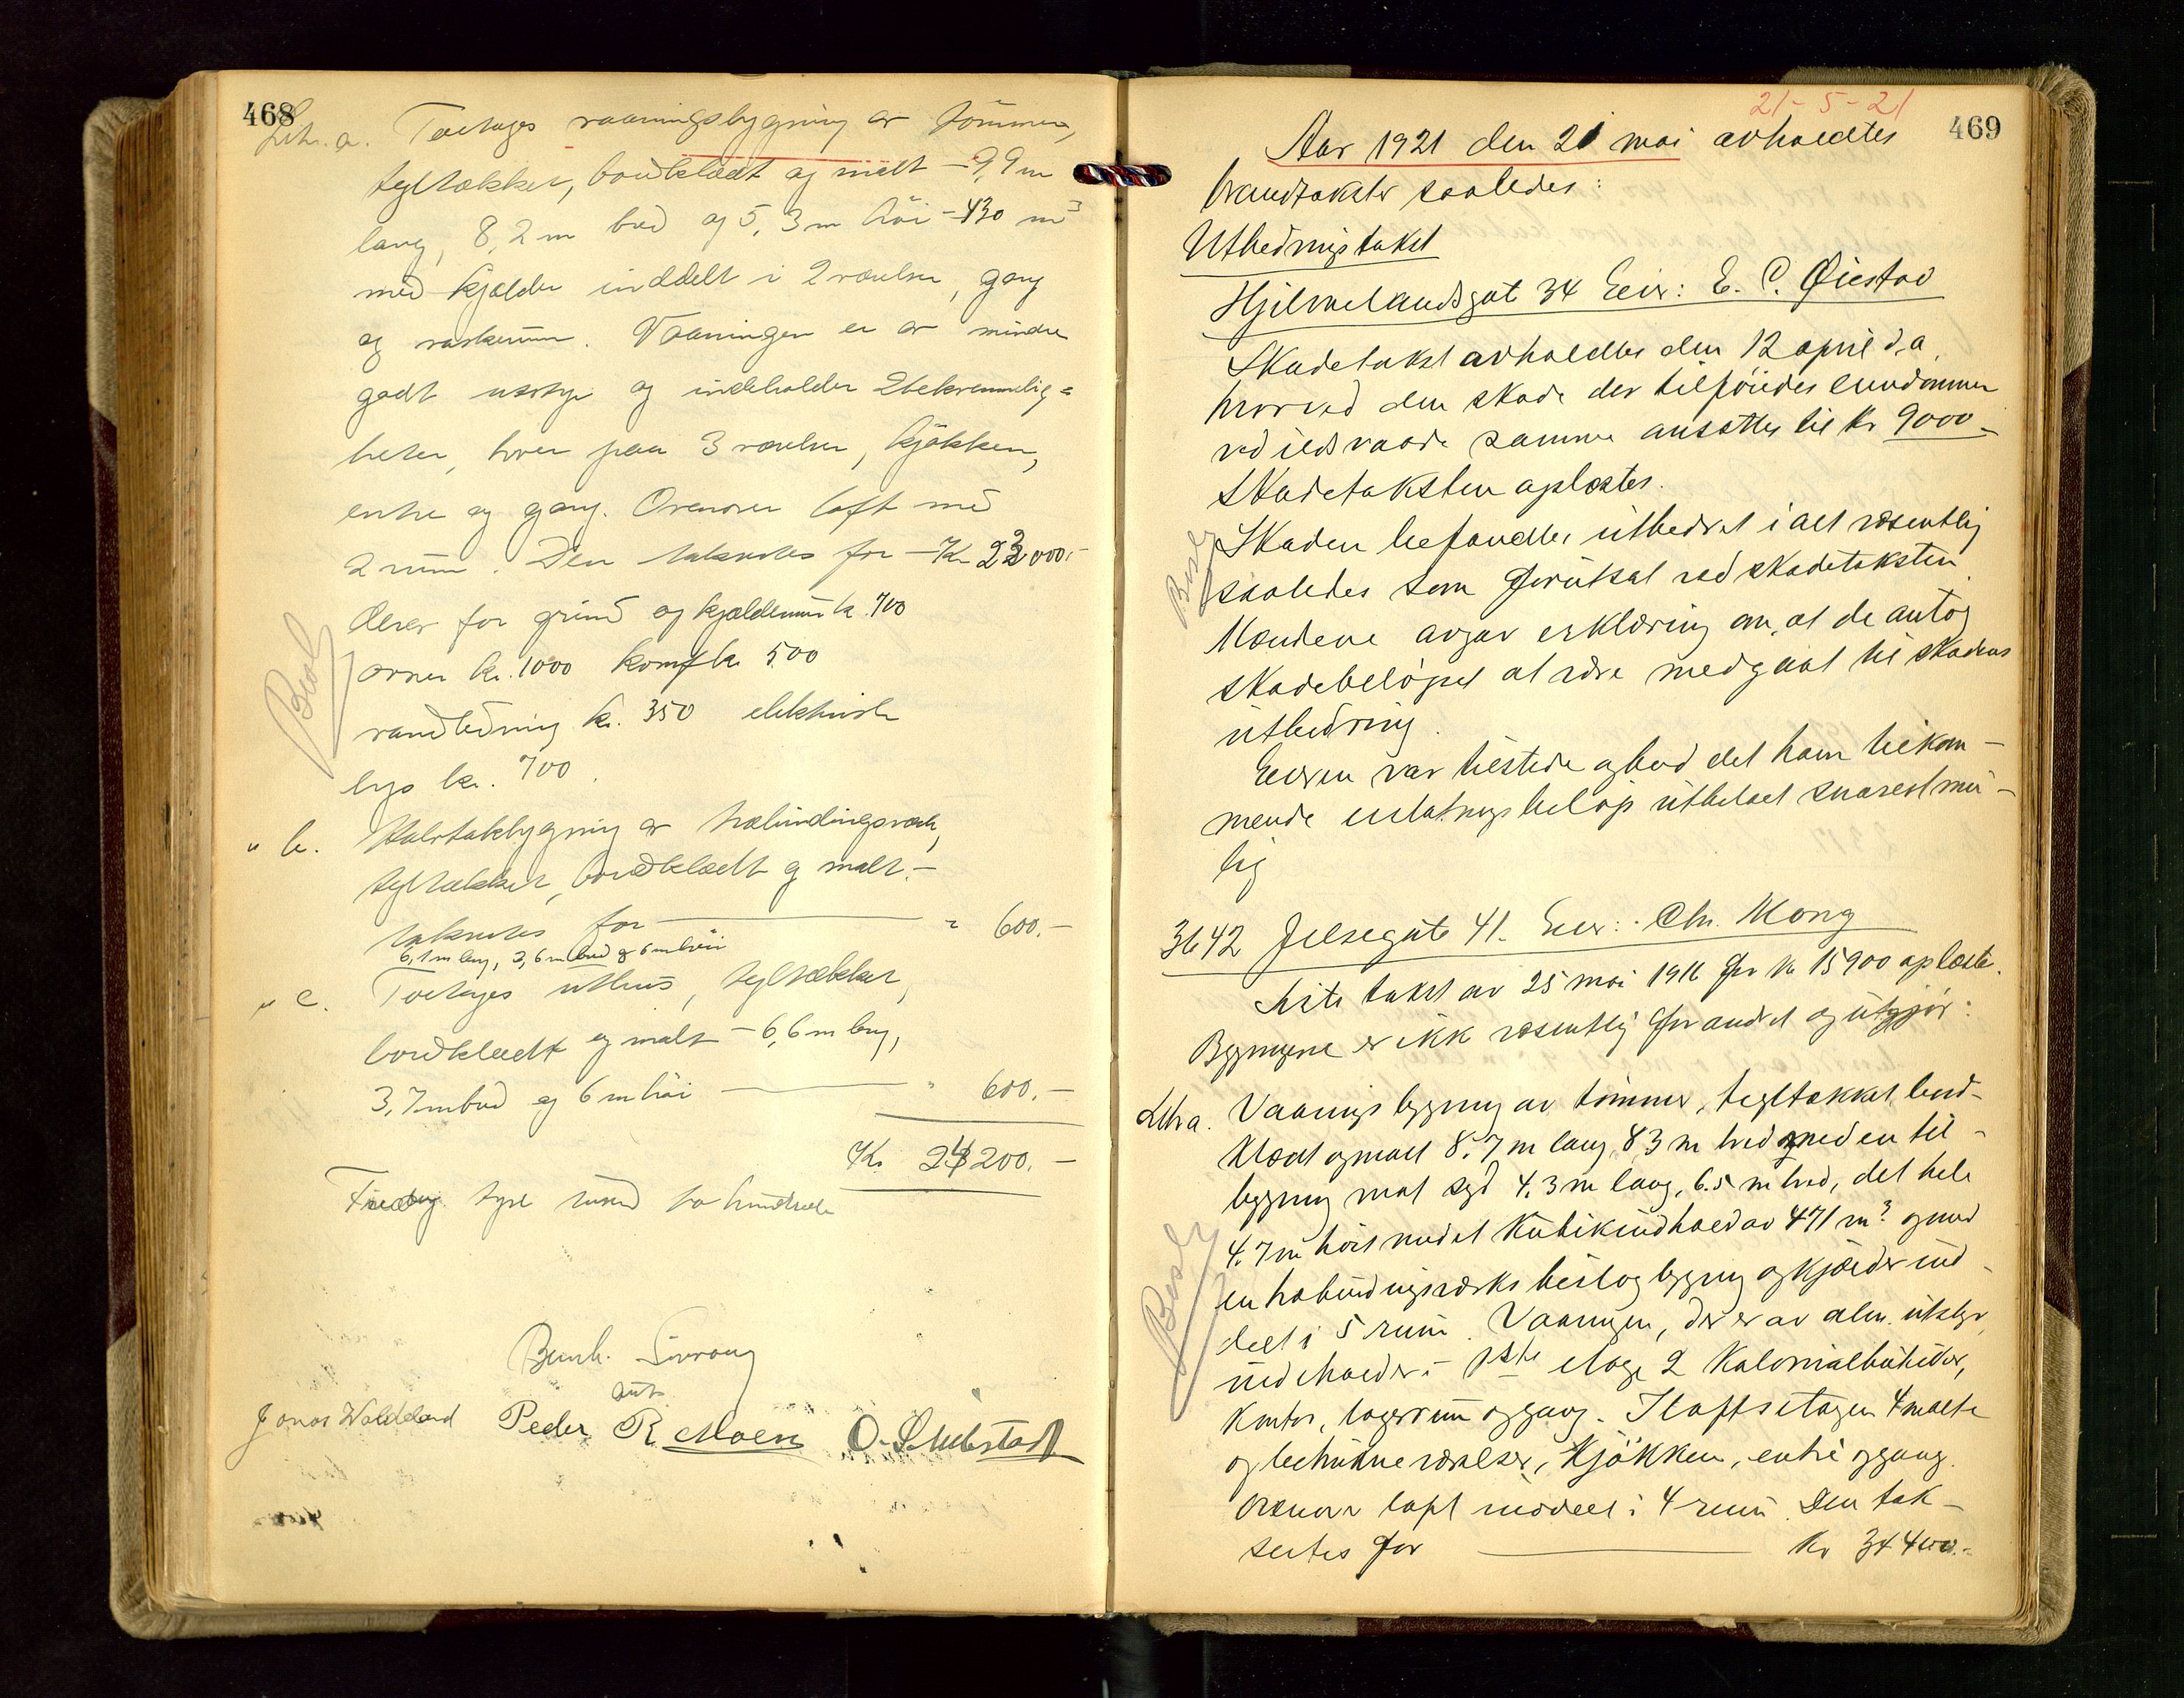 468
Litr. a. Toetages vaaningsbygning av tömmer,
tegltækket, bordklædt og malt – 9,9 m
lang, 8,2 m bred og 5,3 m höi – 430 m³
med kjælder inddelt i 2 værelser, gang
og vaskerum. Vaaningen er av mindre
godt utstyr og indeholder 2 bekvemmelig=
heter, hver paa 3 værelser, kjökken,
entre og gang. Ovenover loft med
2 rum. Den taksertes for – Kr 23000.-
Derav for grund og kjældermur kr. 700
ovner kr. 1000 komf kr 500
vandledning kr. 350 elektrisk
lys kr. 700.
Besl
" b. Halvtakbygning av træbindingsverk,
tegltækket, bordklædt og malt. –
taksertes for — " 600. –
6,1 m lang, 3,6 m bred og 6 m höi
" c. Toetages uthus, tegltækket,
bordklædt og malt – 6,6 m lang,
3,7 m bred og 6 m höi — " 600. –
Kr 24200. –
Tredve fyre tusend to hundrede
Bernh.
Jonas Waldeland Peder R. Moen O. S. Mebstad
469
21-5-21
Aar 1921 den 21 mai avholdtes
brandtakster saaledes:
Utbedringstakst
Hjelmelandsgat 34 Eier: E. C. Øiestad
Skadetakst avholdtes den 12 april d.a.
hvorved den skade der tilföiedes eiendommen
ved ildsvaade samme ansattes til kr 9000 –
Skadetaksten oplæstes.
Skaden befandtes utbedret i alt væsentlig
saaledes som forutsat ved skadetaksten
Mændene avgav erklæring om, at de antog
skadebelöpet at være medgaat til skadens
utbedring.
Besl
Eieren var tilstede og bad det ham tilkom-
mende erstatningsbelöp utbetalt snarest mu-
lig
3642 Jelsegate 41. Eier: Chr. Mong
Siste takst av 25 mai 1916 for kr 15900 oplæstes.
Bygningene er ikke væsentlig forandret og utgjör:
Litra. Vaaningsbygning av tömmer, tegltækket, bord-
klædt og malt 8.7 m lang, 8.3 m bred og med en til-
bygning mot syd 4.3 m lang, 6.5 m bred, det hele
4.7 m höit med et Kubikindhold av 471 m³ og med
en træbindingsverks bislagbygning og kjælder ind-
delt i 5 rum. Vaaningen, der er av alm. utstyr,
indeholder i 1ste etage 2 Kolonialbutikker,
Kontor, lagerrum og gang. I loftsetagen 4 malte
og betrukne værelser, kjökken, entre og gang.
Ovenover loft inddelt i 4 rum. Den tak-
sertes for — kr 34400.-
Besl